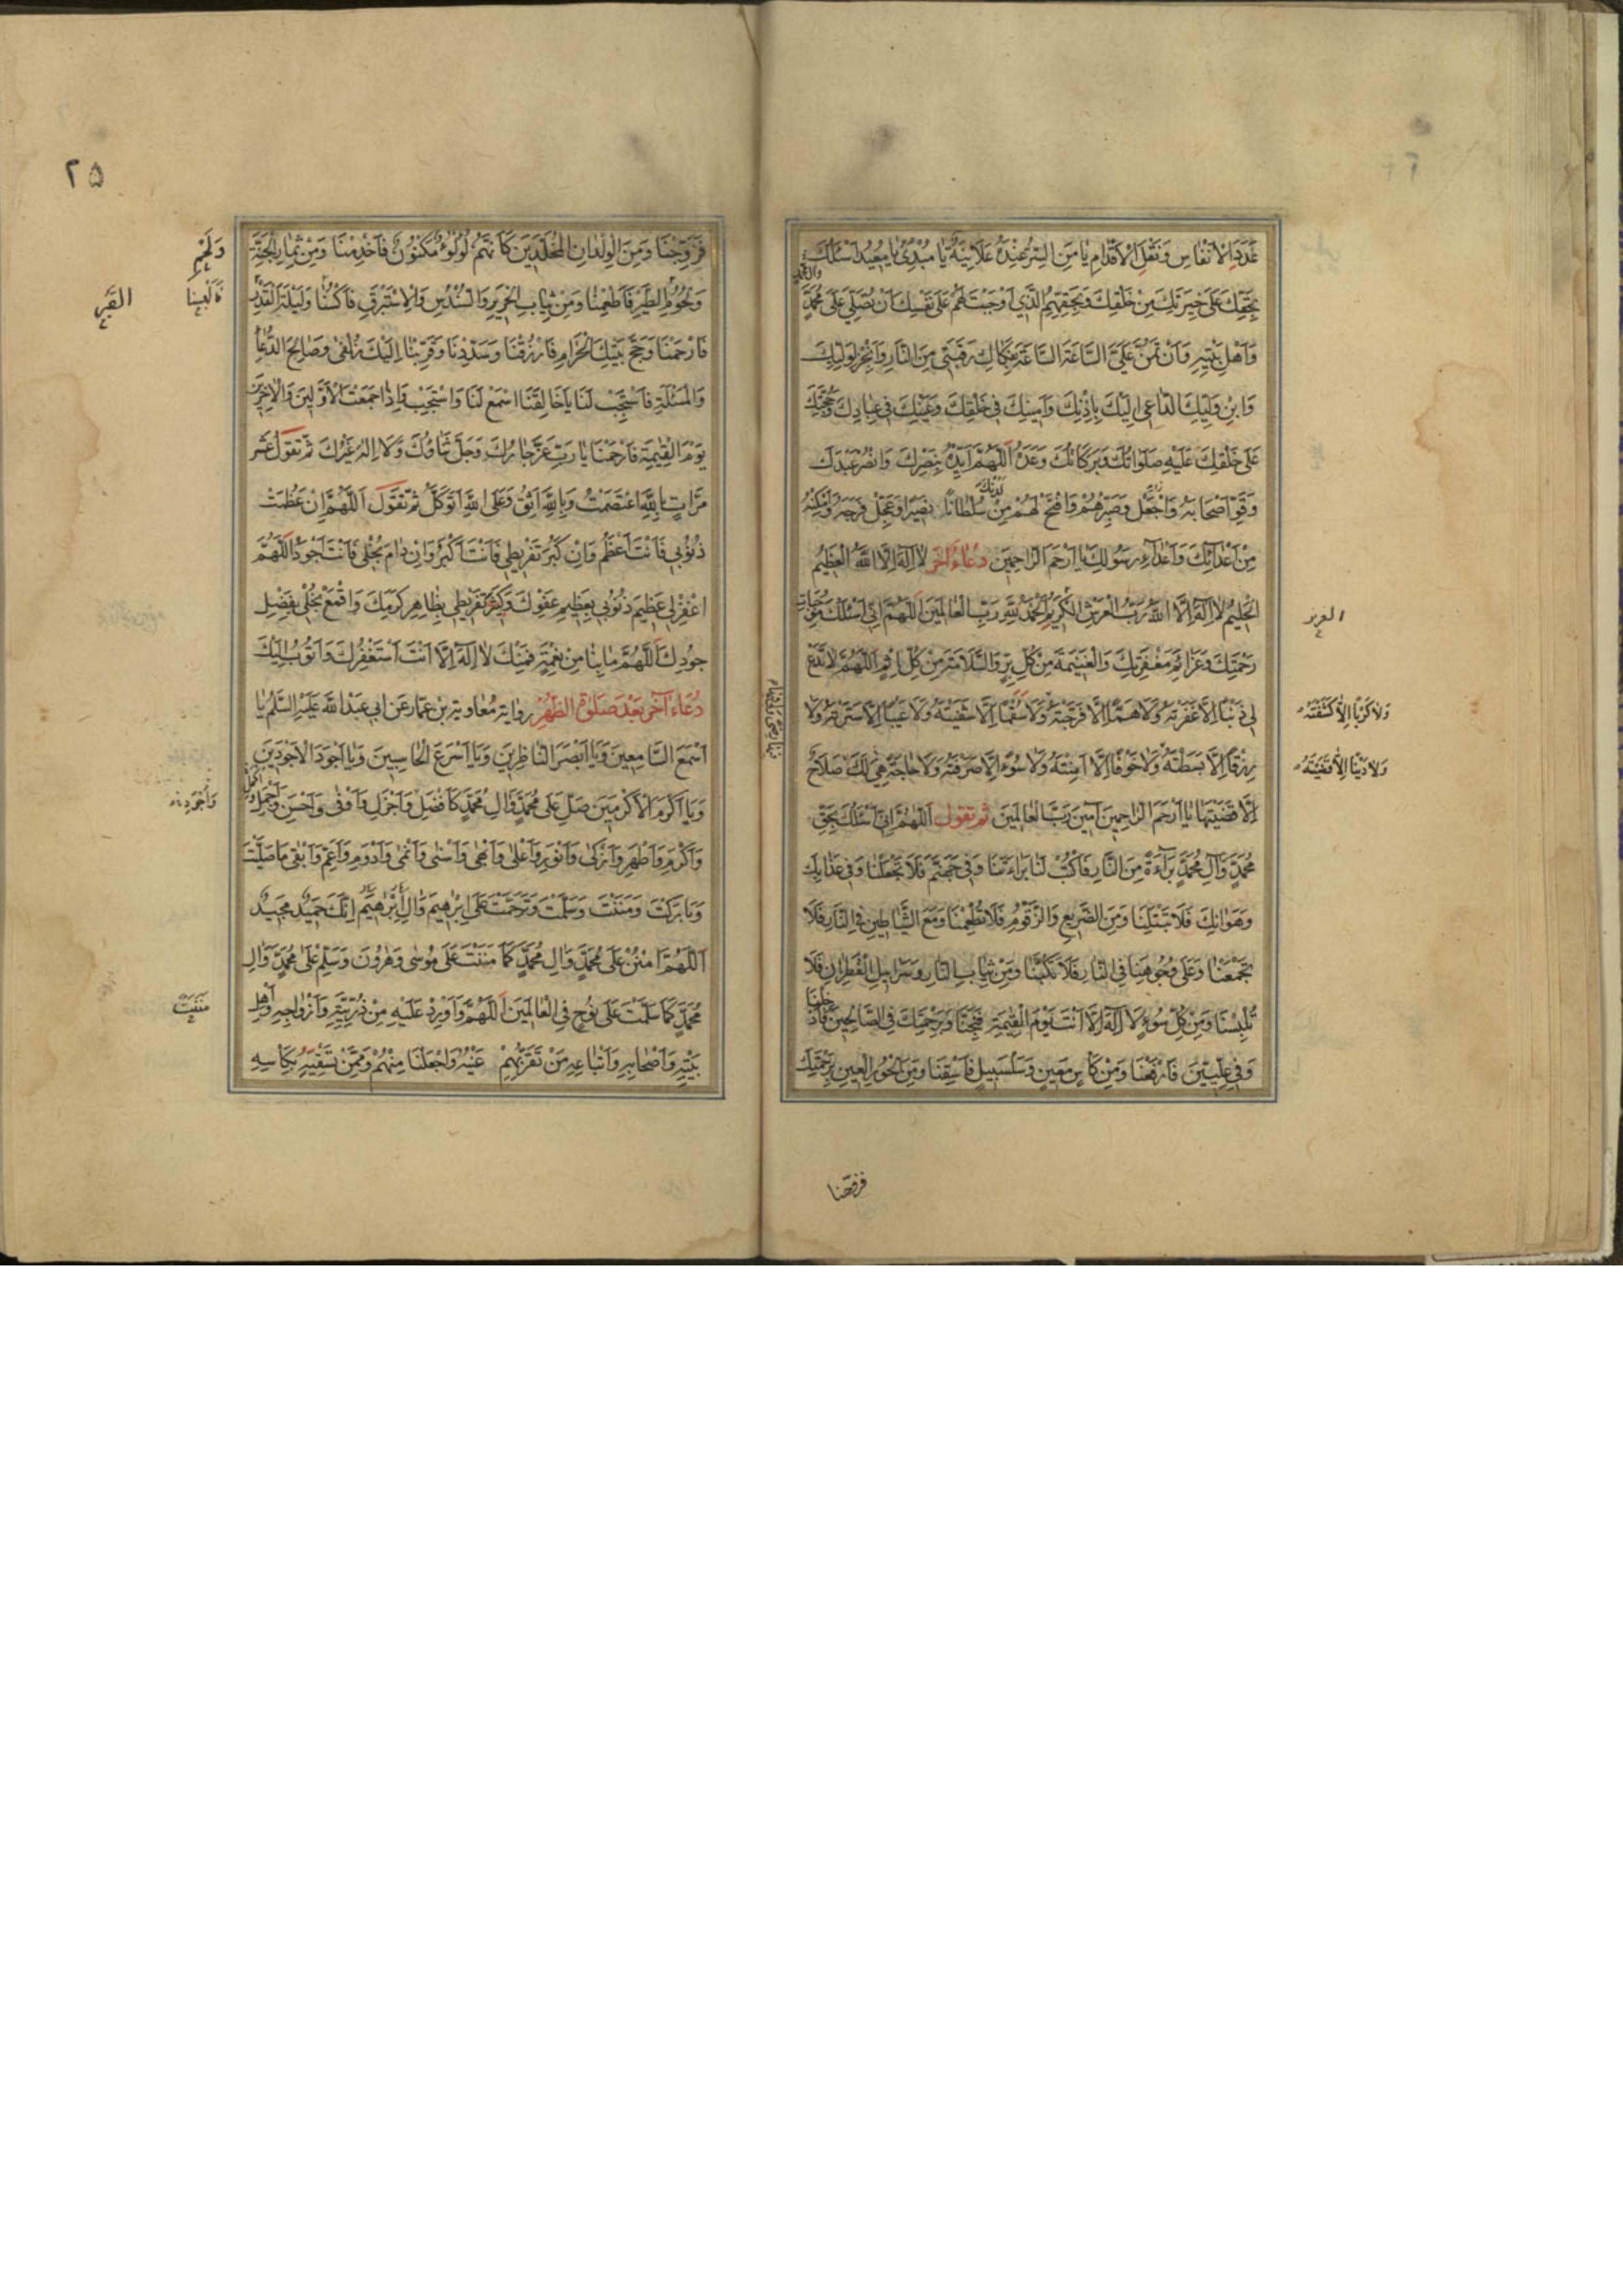 عَدَدَ الْاَنْفَاسِ وَنَقْلِ الْاَقْدَامِ يَا مَنِ السِّرُّ عِنْدَهُ عَلَانِيَةٌ يَا مُبْدِئُ يَا مُعِيدُ اَسْئَلُكَ
بِحَقِّكَ عَلَى خِيَرَتِكَ مِنْ خَلْقِكَ وَبِحَقِّهِمُ الَّذِي اَوْجَبْتَ لَهُمْ عَلَى نَفْسِكَ اَنْ تُصَلِّيَ عَلَى مُحَمَّدٍ
وَاَهْلِ بَيْتِهِ وَاَنْ تَمُنَّ عَلَيَّ السَّاعَةَ السَّاعَةَ بِفِكَاكِ رَقَبَتِي مِنَ النَّارِ وَاَنْجِزْ لِوَلِيِّكَ
وَابْنِ وَلِيِّكَ الدَّاعِي اِلَيْكَ بِاِذْنِكَ وَاَمِينِكَ فِي خَلْقِكَ وَعَيْنِكَ فِي عِبَادِكَ وَحُجَّتِكَ
عَلَى خَلْقِكَ عَلَيْهِ صَلَوَاتُكَ وَبَرَكَاتُكَ وَعْدَهُ اَللّٰهُمَّ اَيِّدْهُ بِنَصْرِكَ وَانْصُرْ عَبْدَكَ
وَقَوِّ اَصْحَابَهُ وَاجْعَلْ وَصَبِّرْهُمْ وَافْتَحْ لَهُمْ مِنْ لَدُنْكَ سُلْطَانًا نَصِيرًا وَعَجِّلْ فَرَجَهُ وَاَمْكِنْهُ
مِنْ اَعْدَائِكَ وَاَعْدَاءِ رَسُولِكَ يَا اَرْحَمَ الرَّاحِمِينَ دُعَاءٌ اٰخَرُ لَا اِلٰهَ اِلَّا اللّٰهُ الْعَظِيمُ
الْحَلِيمُ لَا اِلٰهَ اِلَّا اللّٰهُ رَبُّ الْعَرْشِ الْكَرِيمِ اَلْحَمْدُ لِلّٰهِ رَبِّ الْعَالَمِينَ اَللّٰهُمَّ اِنِّي اَسْئَلُكَ مُوجِبَاتِ
العزيز
رَحْمَتِكَ وَعَزَائِمَ مَغْفِرَتِكَ وَالْغَنِيمَةَ مِنْ كُلِّ بِرٍّ وَالسَّلَامَةَ مِنْ كُلِّ اِثْمٍ اَللّٰهُمَّ لَا تَدَعْ
لِي ذَنْبًا اِلَّا غَفَرْتَهُ وَلَا هَمًّا اِلَّا فَرَّجْتَهُ وَلَا سُقْمًا اِلَّا شَفَيْتَهُ وَلَا عَيْبًا اِلَّا سَتَرْتَهُ وَلَا
وَلَا كَرْبًا اِلَّا كَشَفْتَهُ
رِزْقًا اِلَّا بَسَطْتَهُ وَلَا خَوْفًا اِلَّا اٰمَنْتَهُ وَلَا سُوءًا اِلَّا صَرَفْتَهُ وَلَا حَاجَةً هِيَ لَكَ صَلَاحٌ
وَلَا دَيْنًا اِلَّا قَضَيْتَهُ
اِلَّا قَضَيْتَهَا يَا اَرْحَمَ الرَّاحِمِينَ اٰمِينَ رَبَّ الْعَالَمِينَ ثم تقول اَللّٰهُمَّ اِنِّي اَسْئَلُكَ بِحَقِّ
مُحَمَّدٍ وَاٰلِ مُحَمَّدٍ بَرَاءَةً مِنَ النَّارِ فَاكْتُبْ لَنَا بَرَاءَتَنَا وَفِي جَهَنَّمَ فَلَا تَجْعَلْنَا وَفِي عَذَابِكَ
وَهَوَانِكَ فَلَا تَبْتَلِنَا وَمِنَ الضَّرِيعِ وَالزَّقُّومِ فَلَا تُطْعِمْنَا وَمَعَ الشَّيَاطِينِ فِي النَّارِ فَلَا
تَجْمَعْنَا وَعَلَى وُجُوهِنَا فِي النَّارِ فَلَا تَكُبَّنَا وَمِنْ ثِيَابِ النَّارِ وَسَرَابِيلِ الْقَطِرَانِ فَلَا
تُلْبِسْنَا وَمِنْ كُلِّ سُوءٍ لَا اِلٰهَ اِلَّا اَنْتَ يَوْمَ الْقِيٰمَةِ فَنَجِّنَا وَبِرَحْمَتِكَ فِي الصَّالِحِينَ فَاَدْخِلْنَا
وَفِي عِلِّيِّينَ فَارْفَعْنَا وَمِنْ كَاْسٍ مَعِينٍ وَسَلْسَبِيلٍ فَاسْقِنَا وَمِنَ الْحُورِ الْعِينِ بِرَحْمَتِكَ
فزوجنا
٢٥
فَزَوِّجْنَا وَمِنَ الْوِلْدَانِ الْمُخَلَّدِينَ كَاَنَّهُمْ لُؤْلُؤٌ مَكْنُونٌ فَاَخْدِمْنَا وَمِنْ ثِمَارِ الْجَنَّةِ
وَلَحْمِ
وَلُحُومِ الطَّيْرِ فَاَطْعِمْنَا وَمِنْ ثِيَابِ الْحَرِيرِ وَالسُّنْدُسِ وَالْاِسْتَبْرَقِ فَاكْسُنَا وَلَيْلَةَ الْقَدْرِ
فَاَلْبِسْنَا
فَارْحَمْنَا وَحَجَّ بَيْتِكَ الْحَرَامِ فَارْزُقْنَا وَسَدِّدْنَا وَقَرِّبْنَا اِلَيْكَ زُلْفٰى وَصَالِحَ الدُّعَاءِ
وَالْمَسْئَلَةِ فَاسْتَجِبْ لَنَا يَا خَالِقَنَا اسْمَعْ لَنَا وَاسْتَجِبْ وَاِذَا جَمَعْتَ الْاَوَّلِينَ وَالْاٰخِرِينَ
يَوْمَ الْقِيٰمَةِ فَارْحَمْنَا يَا رَبِّ عَزَّ جَارُكَ وَجَلَّ ثَنَاؤُكَ وَلَا اِلٰهَ غَيْرُكَ ثُمَّ تَقُولُ عَشْرَ
مَرَّاتٍ بِاللّٰهِ اعْتَصَمْتُ وَبِاللّٰهِ اَثِقُ وَعَلَى اللّٰهِ اَتَوَكَّلُ ثُمَّ تَقُولُ اَللّٰهُمَّ اِنْ عَظُمَتْ
ذُنُوبِي فَاَنْتَ اَعْظَمُ وَاِنْ كَبُرَ تَفْرِيطِي فَاَنْتَ اَكْبَرُ وَاِنْ دَامَ بُخْلِي فَاَنْتَ اَجْوَدُ اَللّٰهُمَّ
اغْفِرْ لِي عَظِيمَ ذُنُوبِي بِعَظِيمِ عَفْوِكَ وَكَبِيرَ تَفْرِيطِي بِظَاهِرِ كَرَمِكَ وَاقْمَعْ بُخْلِي بِفَضْلِ
جُودِكَ اَللّٰهُمَّ مَا بِنَا مِنْ نِعْمَةٍ فَمِنْكَ لَا اِلٰهَ اِلَّا اَنْتَ اَسْتَغْفِرُكَ وَاَتُوبُ اِلَيْكَ
دُعَاءٌ اٰخَرُ بَعْدَ صَلٰوةِ الظُّهْرِ رواية مُعَاوِيَة بن عَمَّار عَن ابي عَبْدِ اللّٰه عَلَيْهِ السَّلَمُ يَا
اَسْمَعَ السَّامِعِينَ وَيَا اَبْصَرَ النَّاظِرِينَ وَيَا اَسْرَعَ الْحَاسِبِينَ وَيَا اَجْوَدَ الْاَجْوَدِينَ
وَيَا اَكْرَمَ الْاَكْرَمِينَ صَلِّ عَلَى مُحَمَّدٍ وَاٰلِ مُحَمَّدٍ كَاَفْضَلِ وَاَجْزَلِ وَاَوْفٰى وَاَحْسَنِ وَاَجْمَلِ
وَاَكْرَمِ وَاَطْهَرِ وَاَزْكٰى وَاَنْوَرِ وَاَعْلٰى وَاَبْهٰى وَاَسْنٰى وَاَنْمٰى وَاَدْوَمِ وَاَعَمِّ وَاَبْقٰى مَا صَلَّيْتَ
وَبَارَكْتَ وَمَنَنْتَ وَسَلَّمْتَ وَتَرَحَّمْتَ عَلَى اِبْرٰهِيمَ وَاٰلِ اِبْرٰهِيمَ اِنَّكَ حَمِيدٌ مَجِيدٌ
اَللّٰهُمَّ امْنُنْ عَلَى مُحَمَّدٍ وَاٰلِ مُحَمَّدٍ كَمَا مَنَنْتَ عَلَى مُوسٰى وَهٰرُونَ وَسَلِّمْ عَلَى مُحَمَّدٍ وَاٰلِ
مُحَمَّدٍ كَمَا سَلَّمْتَ عَلَى نُوحٍ فِي الْعَالَمِينَ اَللّٰهُمَّ وَاَوْرِدْ عَلَيْهِ مِنْ ذُرِّيَّتِهِ وَاَزْوَاجِهِ وَاَهْلِ
بَيْتِهِ وَاَصْحَابِهِ وَاَتْبَاعِهِ مَنْ تَقَرُّ بِهِمْ عَيْنُهُ وَاجْعَلْنَا مِنْهُمْ وَمِمَّنْ تَسْقِيهِ بِكَاْسِهِ